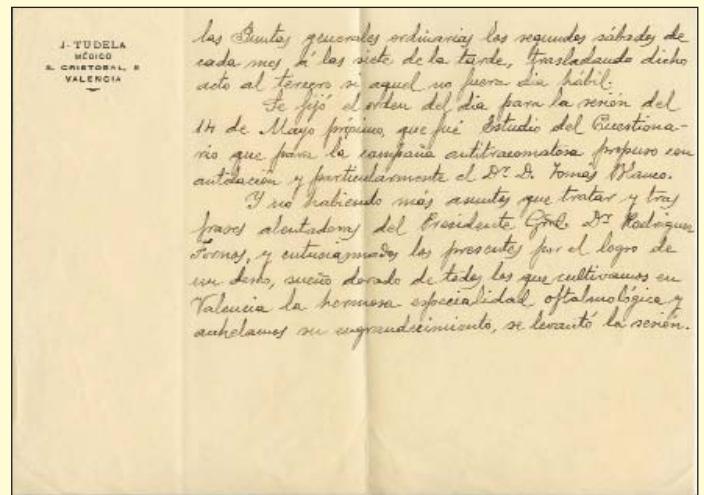 J. TUDELA
MÉDICO
S. CRISTOBAL, 8
VALENCIA
las Juntas generales ordinarias los segundos sábados de
cada mes á las siete de la tarde, trasladando dicho
acto al tercero si aquel no fuera dia hábil.
Se fijó el orden del dia para la sesión del
14 de Mayo próximo, que fué Estudio del Cuestiona-
rio que para la campaña antitracomatosa propuso con
antelación y particularmente el Dr. D. Tomás Blanco.
Y no habiendo más asuntos que tratar y tras
frases alentadoras del Presidente Gral. Dr. Rodriguez
Fornos, y entusiasmados los presentes por el logro de
un deseo, sueño dorado de todos los que cultivamos en
Valencia la hermosa especialidad oftalmológica y
anhelamos su engrandecimiento, se levantó la sesión.